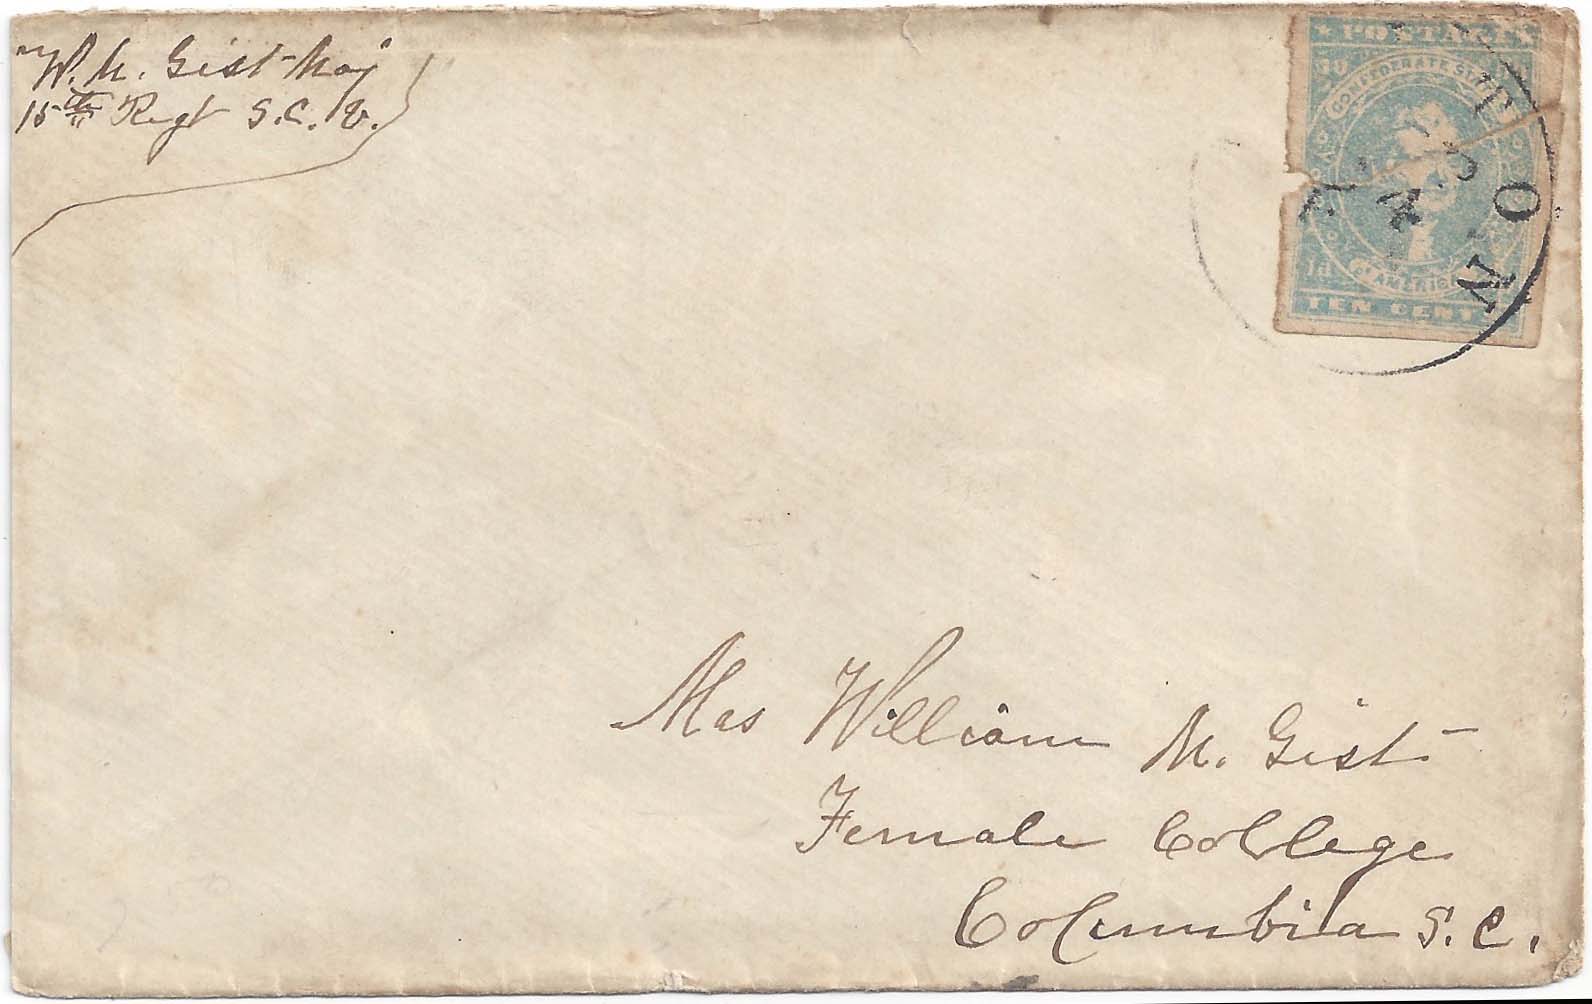 W. M. Gist Maj
15th Regt S. C. V.
POSTAGE
CONFEDERATE STATES
OF AMERICA
TEN CENTS
Mrs William M. Gist
Female College
Columbia S. C.